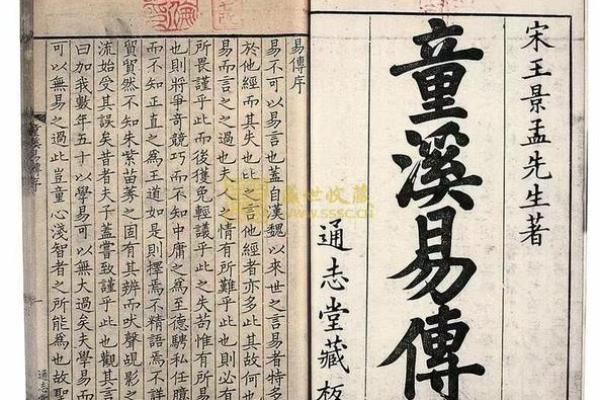 宋王景孟先生著
童溪易傳
通志堂藏板
易傳序
易不可以易言也蓋自漢魏以來世之言易者特多
於他經而其失也比之言他經者亦多此其故何也
易而言之之過也夫人之情有所難乎此也則必有
所畏謹乎此而後獲免輕議乎此之失苟惟有所易
也則將爭奇競巧而不知中庸之爲至德騁私任臆
而不知正直之爲王道如是則擇焉不精語焉不詳
貿貿然不知朱紫苗莠之固有其辨而吠聲覘影之
流始受其誤矣昔者夫子蓋嘗致謹乎此也觀其言
曰加我數年五十以學易可以無大過矣夫學易而
可以無易之過此豈童心淺智者之所能爲也故聖
通志
盛世收藏
www.sssc.cn